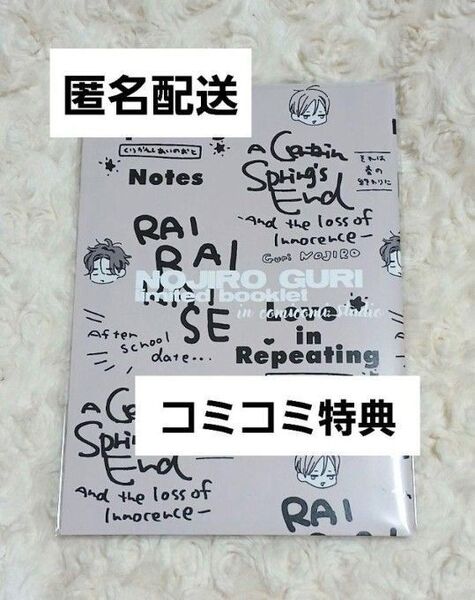 匿名配送
Notes
A Certain
Spring's
End
-And the loss of
Innocence-
Guri NOJIRO
それは
春の
終わりに
RAI
RAI
SE
NOJIRO GURI
limited booklet
in comicomi studio
After
school
date...
Love
in
Repeating
コミコミ特典
A Ce
Spring
End
-And the loss of
Innocence-
RAI